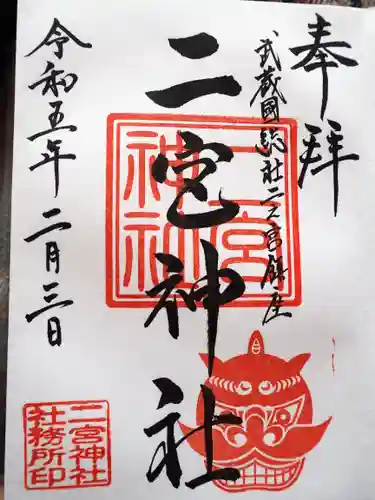 奉拝
武蔵國総社二之宮鎮座
二宮神社
令和五年二月三日
二宮神社
二宮神社
社務所印